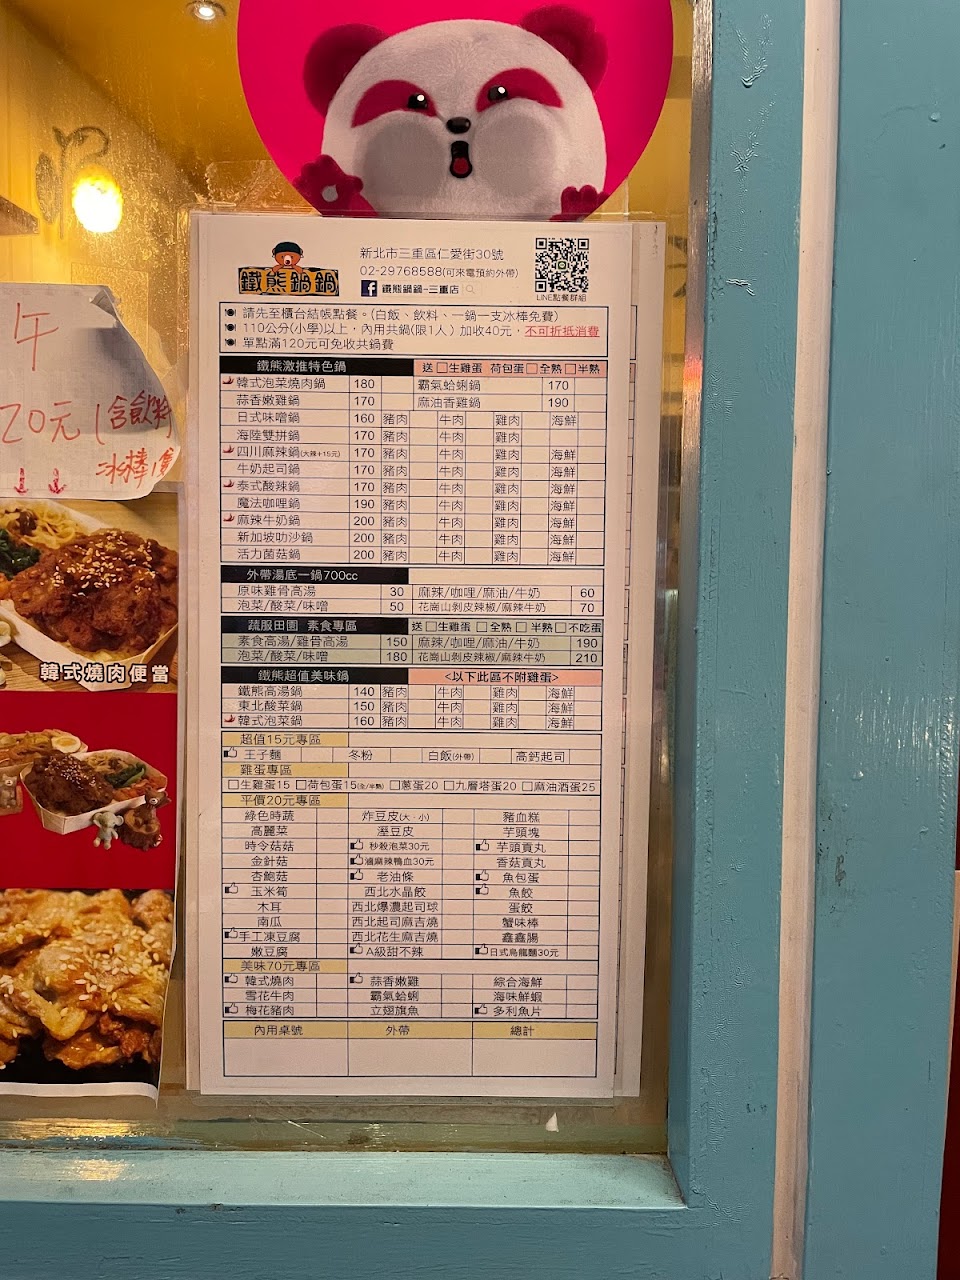 新北市三重區仁愛街30號
02-29768588(可來電預約外帶)
鐵熊鍋鍋
鐵熊鍋鍋-三重店
LINE點餐群組
請先至櫃台結帳點餐。(白飯、飲料、一鍋一支冰棒免費)
110公分(小學)以上，內用共鍋(限1人)加收40元，不可折抵消費
單點滿120元可免收共鍋費
鐵熊激推特色鍋 送 □生雞蛋 荷包蛋□全熟□半熟
韓式泡菜燒肉鍋 180 霸氣蛤蜊鍋 170
蒜香嫩雞鍋 170 麻油香雞鍋 190
日式味噌鍋 160 豬肉 牛肉 雞肉 海鮮
海陸雙拼鍋 170 豬肉 牛肉 雞肉
四川麻辣鍋(大辣+15元) 170 豬肉 牛肉 雞肉 海鮮
牛奶起司鍋 170 豬肉 牛肉 雞肉 海鮮
泰式酸辣鍋 170 豬肉 牛肉 雞肉 海鮮
魔法咖哩鍋 190 豬肉 牛肉 雞肉 海鮮
麻辣牛奶鍋 200 豬肉 牛肉 雞肉 海鮮
新加坡叻沙鍋 200 豬肉 牛肉 雞肉 海鮮
活力菌菇鍋 200 豬肉 牛肉 雞肉 海鮮
外帶湯底一鍋700cc
原味雞骨高湯 30 麻辣/咖哩/麻油/牛奶 60
泡菜/酸菜/味噌 50 花崗山剝皮辣椒/麻辣牛奶 70
蔬服田園 素食專區 送 □生雞蛋 □全熟 □半熟 □不吃蛋
素食高湯/雞骨高湯 150 麻辣/咖哩/麻油/牛奶 190
泡菜/酸菜/味噌 180 花崗山剝皮辣椒/麻辣牛奶 210
鐵熊超值美味鍋 <以下此區不附雞蛋>
鐵熊高湯鍋 140 豬肉 牛肉 雞肉 海鮮
東北酸菜鍋 150 豬肉 牛肉 雞肉 海鮮
韓式泡菜鍋 160 豬肉 牛肉 雞肉 海鮮
超值15元專區
王子麵 冬粉 白飯(外帶) 高鈣起司
雞蛋專區
□生雞蛋15 □荷包蛋15(全/半熟) □蔥蛋20 □九層塔蛋20 □麻油酒蛋25
平價20元專區
綠色時蔬 炸豆皮(大．小) 豬血糕
高麗菜 溼豆皮 芋頭塊
時令菇菇 秒殺泡菜30元 芋頭貢丸
金針菇 滷麻辣鴨血30元 香菇貢丸
杏鮑菇 老油條 魚包蛋
玉米筍 西北水晶餃 魚餃
木耳 西北爆濃起司球 蛋餃
南瓜 西北起司麻吉燒 蟹味棒
手工凍豆腐 西北花生麻吉燒 鑫鑫腸
嫩豆腐 A級甜不辣 日式烏龍麵30元
美味70元專區
韓式燒肉 蒜香嫩雞 綜合海鮮
雪花牛肉 霸氣蛤蜊 海味鮮蝦
梅花豬肉 立翅旗魚 多利魚片
內用桌號 外帶 總計
午
20元(含飲料
冰棒1隻
韓式燒肉便當